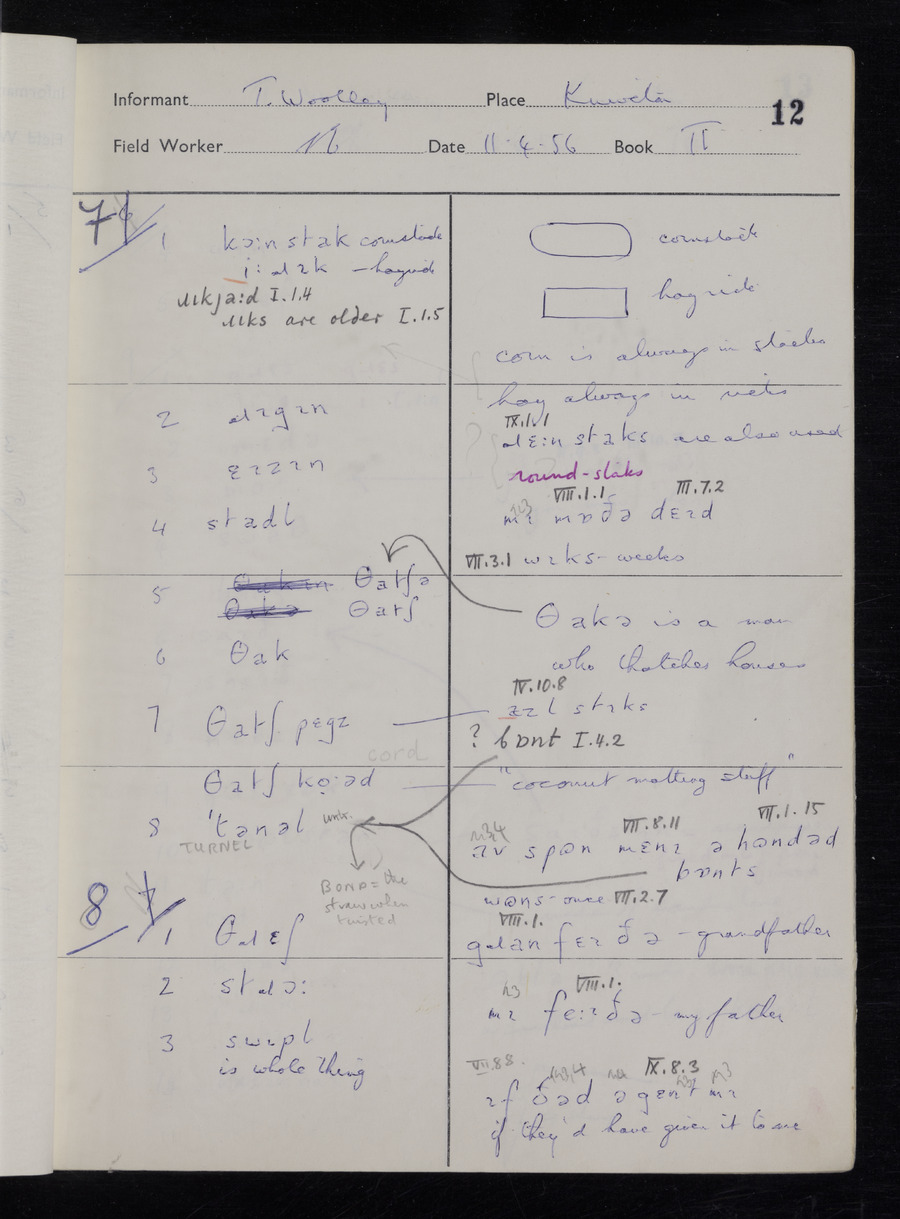 Informant T. Woolley Place Kniveton
12
Field Worker Date 11·4·56 Book II
7
1 kɔ:nstak cornstack
cornstack
ɹɪkja:d I.1.4
ɹɪks are older I.1.5
corn is always in stacks
hay always in ricks
2 dɪgɪn
IX.1.1
staks are also used
round-staks
3 ɛɪzɪn
VIII.1.1 III.7.2
4 stadl
mɪ mʊðə dɛɪd
VII.3.1 wɪks - weeks
5 θatʃə
θatʃ
θakə is a man
who thatches houses
6 θak
IV.10.8
7 θatʃ pɛgz
stɪks
? bɒnt I.4.2
cord
θatʃ kɔ:əd
"coconut matting stuff"
VII.8.11 VII.1.15
8 'tənəl
TURNEL
av spʊn mɛnɪ ə hʊndəd
bɒnts
BOND = the
straw when
twisted
wʊns - once VII.2.7
VIII.1.
8
1 θɹɛʃ
fɛɪðə - grandfather
2 stɹɔ:
VIII.1.
mɪ fɛ:ɪðə - my father
3 swɪpl
is whole thing
VII.8.8. IX.8.3
ɪf ðəd əgɛnt mɪ
if they'd have given it to me